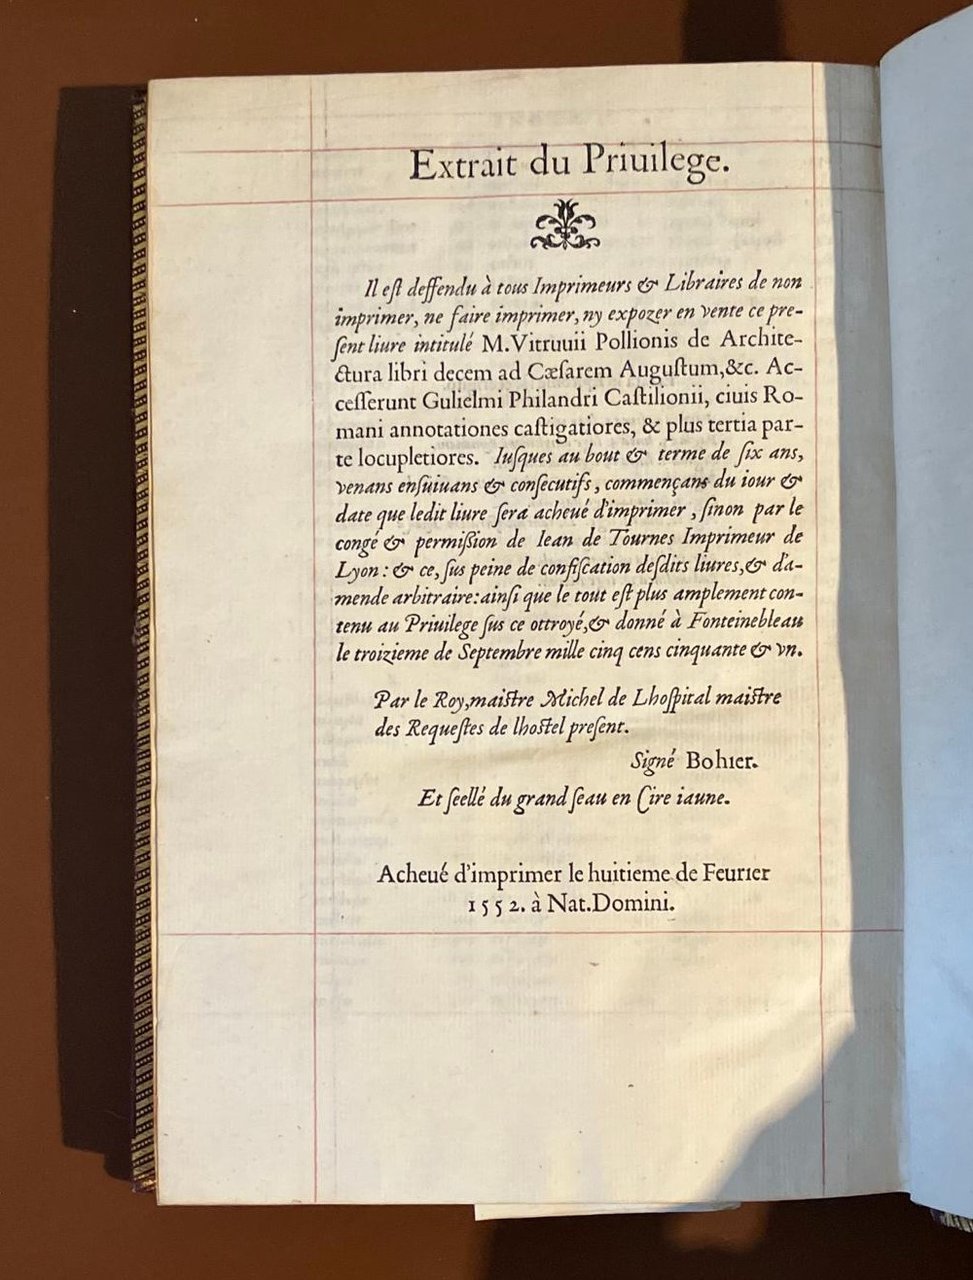 Extrait du Priuilege.
Il eſt deffendu à tous Imprimeurs & Libraires de non
imprimer, ne faire imprimer, ny expozer en vente ce pre-
ſent liure intitulé M.Vitruuii Pollionis de Archite-
ctura libri decem ad Cæſarem Auguſtum,&c. Ac-
ceſſerunt Gulielmi Philandri Caſtilionii, ciuis Ro-
mani annotationes caſtigatiores, & plus tertia par-
te locupletiores. Iuſques au bout & terme de ſix ans,
venans enſuiuans & conſecutifs, commençans du iour &
date que ledit liure ſera acheué d'imprimer, ſinon par le
congé & permißion de Iean de Tournes Imprimeur de
Lyon: & ce, ſus peine de confiſcation deſdits liures,& d'a-
mende arbitraire: ainſi que le tout eſt plus amplement con-
tenu au Priuilege ſus ce ottroyé,& donné à Fonteinebleau
le troizieme de Septembre mille cinq cens cinquante & vn.
Par le Roy,maiſtre Michel de Lhoſpital maiſtre
des Requeſtes de lhoſtel preſent.
Signé Bohier.
Et ſeellé du grand ſeau en Cire iaune.
Acheué d'imprimer le huitieme de Feurier
1552. à Nat.Domini.